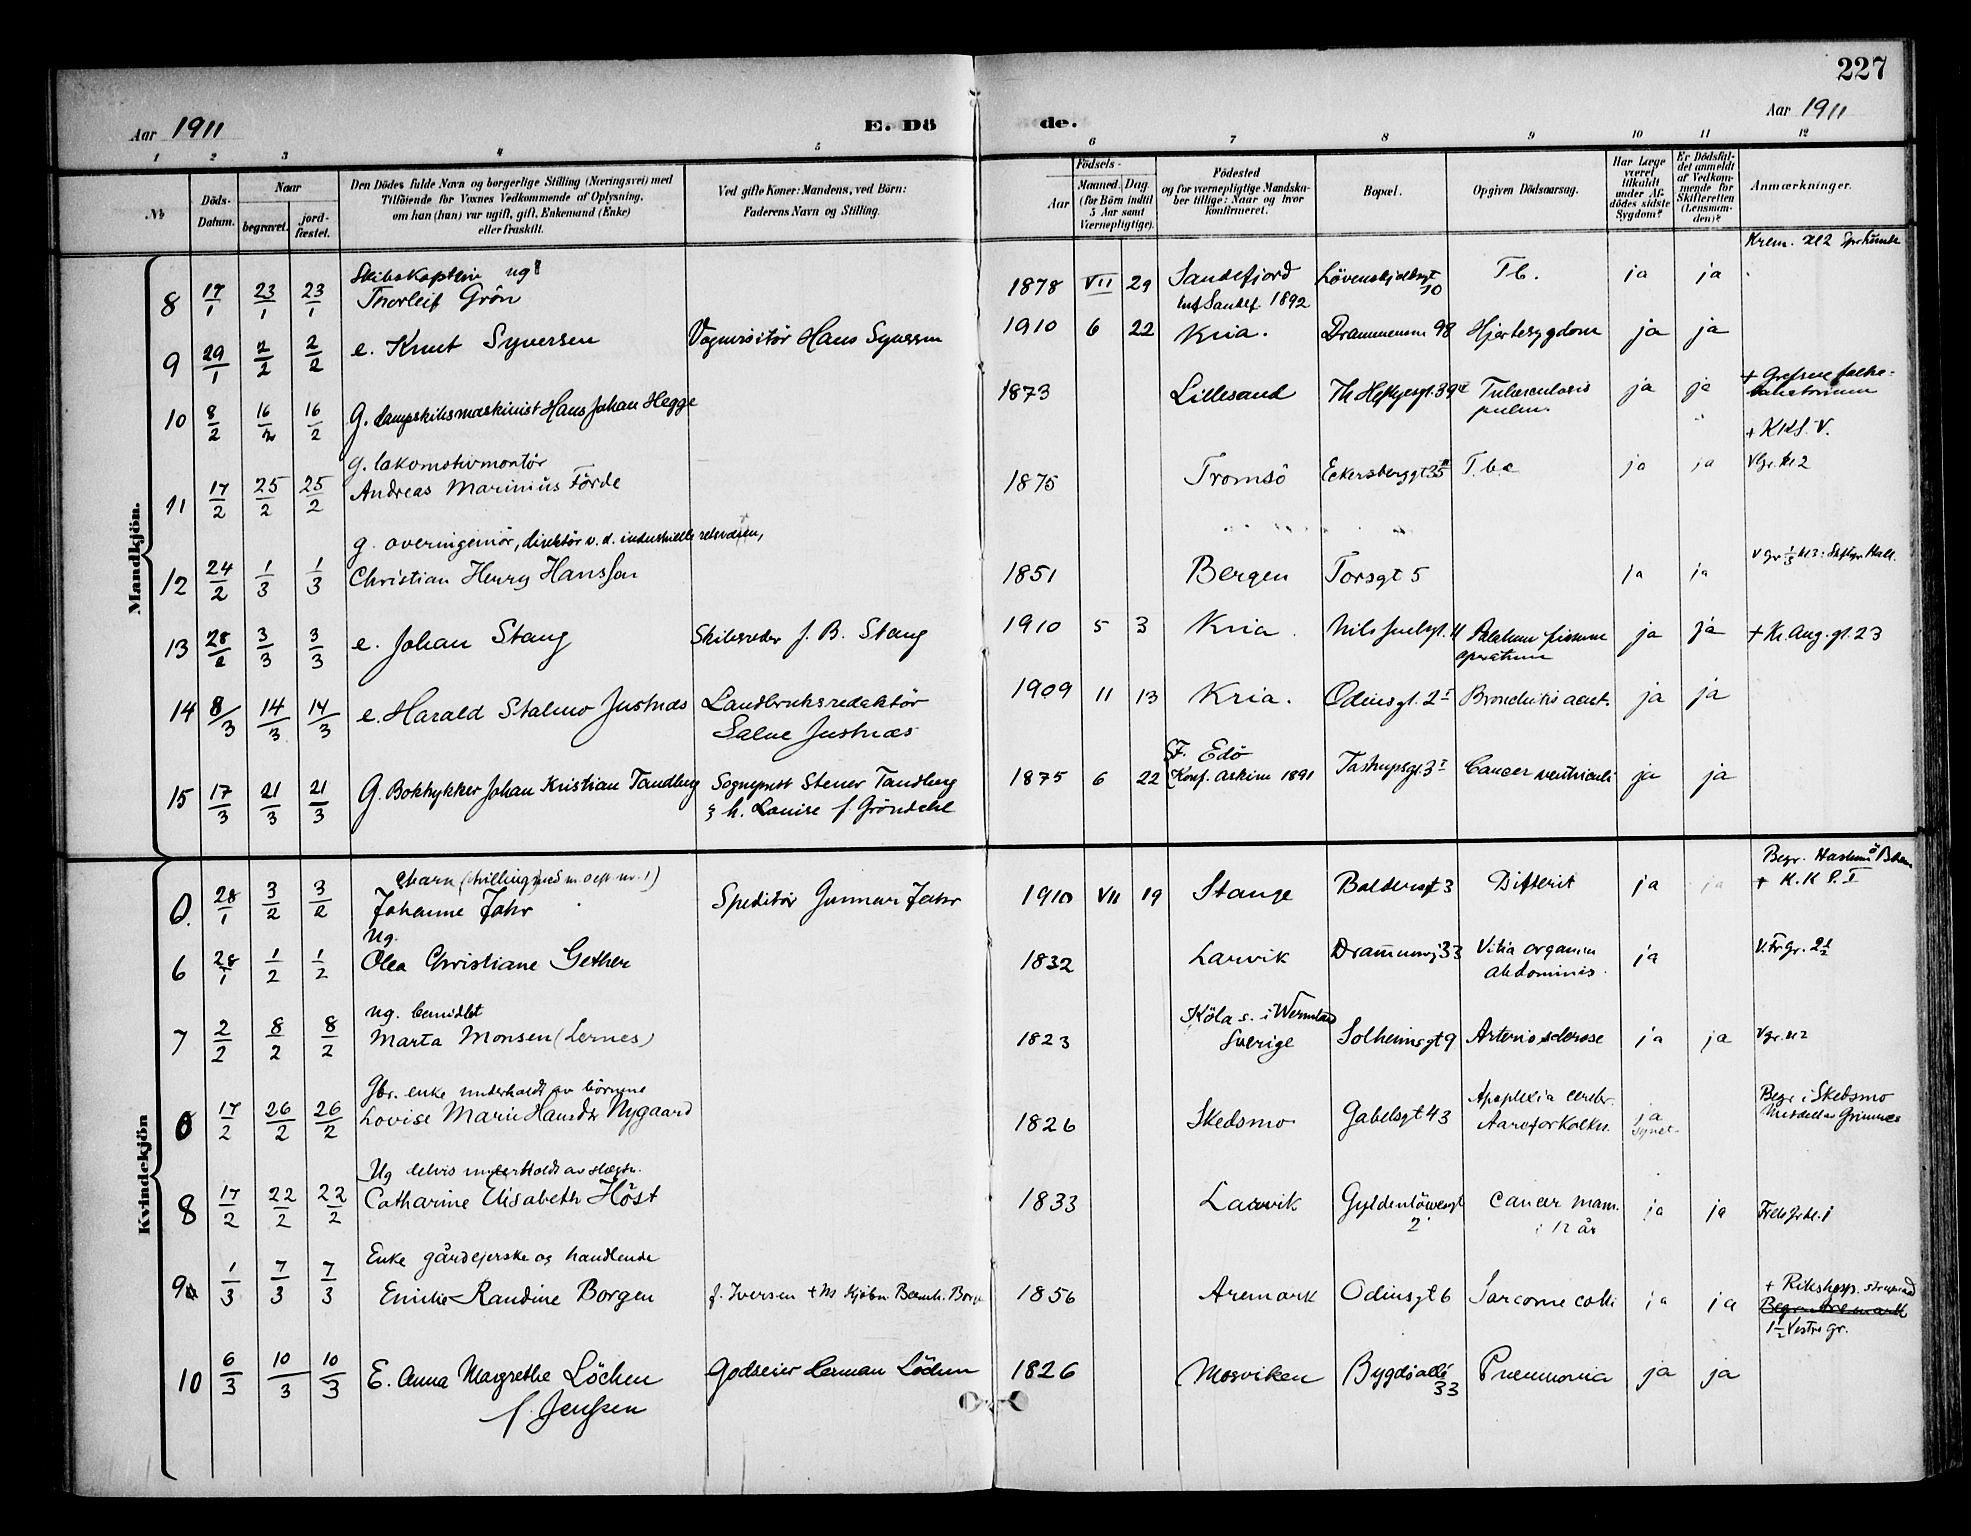 227
Aar 1911
E. Döde.
Aar 1911
1 2 3 4 5 6 7 8 9 10 11 12
No
Döds-Datum.
Naar
begravet.
jordfæstet.
Den Dödes fulde Navn og borgerlige Stilling (Næringsvei) med
Tilföiende for Voxnes Vedkommende af Oplysning,
om han (hun) var ugift, gift, Enkemand (Enke)
eller fraskilt.
Ved gifte Koner: Mandens, ved Börn:
Faderens Navn og Stilling.
Födsels-
Aar
Maaned. Dag.
(for Börn indtil
5 Aar samt
Værnepligtige).
Födested
og for værnepligtige Mandskaber tillige: Naar og hvor
konfirmeret.
Bopæl.
Opgiven Dödsaarsag.
Har Læge
været
tilkaldt
under Afdödes sidste
Sygdom?
Er Dödsfaldet anmeldt
af Vedkommende for
Skifteretten
(Lensmanden)?
Anmærkninger.
Mandkjön.
Krem.
Skibskaptein ug
8 17/1 23/1 23/1 Thorleif Grön 1878 VII 29 Sandefjord Lövenskjoldsgt 10 Tb. ja ja
Sandef. 1892
9 29/1 2/2 2/2 e. Knut Syversen Vognvisitör Hans Syversen 1910 6 22 Kria. Drammensv 98 Hjertesygdom ja ja
10 8/2 16/2 16/2 G. dampskibsmaskinist Hans Johan Hegge 1873 Lillesand Th Heftyesgt. 39 Tuberculosis pulm. ja ja + Grefsen folkesanatorium
+ KKS. V.
g. lokomotivmontör
11 17/2 25/2 25/2 Andreas Marinius Förde 1875 Tromsö Eckersbergsgt 35 Tbc ja ja Vgr. kl 2
g. overingeniör, direktör v. d. industrielle retsvæsen,
12 24/2 1/3 1/3 Christian Henry Hansson 1851 Bergen Torsgt 5 ja ja
13 28/2 3/3 3/3 e. Johan Stang Skibsreder J. B. Stang 1910 5 3 Kria. Nils Juelsgt. 11 Palatum fissum operatum ja ja + Kr. Aug. gt. 23
14 8/3 14/3 14/3 e. Harald Stalmo Justnæs Landbruksredaktör
Salve Justnæs 1909 11 13 Kria. Odinsgt. 2 I Bronchitis acut. ja ja
15 17/3 21/3 21/3 G. Boktrykker Johan Kristian Tandberg Sogneprest Stener Tandberg
& h. Louise f. Gröndahl 1875 6 22 Edö
Konf. Askim 1891 Tastrupsgt 3 I Cancer ventriculi ja ja
Kvindekjön
0. 28/1 3/2 3/2 Johanne Jahr Speditör Gunnar Jahr 1910 VII 19 Stange Baldersgt 3 Difterit ja ja + K. K P. I
Ug.
6 28/1 1/2 1/2 Olea Christiane Gether 1832 Larvik Drammensvj 33 Vitia organum abdominis. ja
ug. bemidlet
7 2/2 8/2 8/2 Marta Monsen (Lernes) 1823 Köla s. i Wermland
Sverige Solheimsgt 9 Arteriosclerose ja ja Vgr. kl 2
Gbr. enke underholdt av börnene
0 17/2 26/2 26/2 Lovise Marie Hansdtr Nygaard 1826 Skedsmo Gabelsgt 43 Apoplexia cerebr.
Aareforkalkn. ja
synet Begr. i Skedsmo
Ug delvis underholdt av slægtn.
8 17/2 22/2 22/2 Catharine Elisabeth Höst 1833 Larvik Gyldenlövesgt 2 Cancer mam.
i 12 år ja ja
Enke gårdejerske og handlende
9 1/3 7/3 7/3 Emilie Randine Borgen f. Iversen 1856 Aremark Odinsgt 6 Sarcome colli ja ja + Rikshosp.
Begr. Aremark
Vestre gr.
10 6/3 10/3 10/3 E. Anna Margrethe Löchen
f. Jenssen Godseier Herman Löchen 1826 Mosviken Bygdö allé 33 Pneumonia ja ja